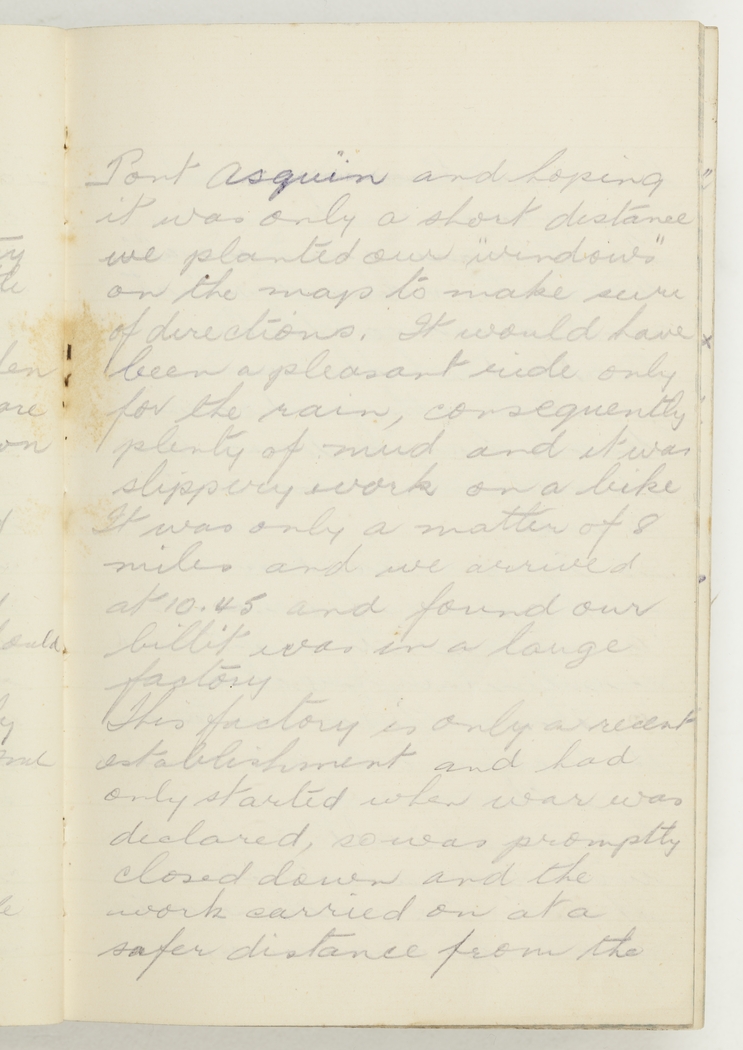 Pont Asquin and hoping
it was only a short distance
we planted our "windows"
on the map to make sure
of directions. It would have
been a pleasant ride only
for the rain, consequently
plenty of mud and it was
slippery work on a bike
It was only a matter of 8
miles and we arrived
at 10.45 and found our
billit was in a large
factory
This factory is only a recent
establishment and had
only started when war was
declared, so was promptly
closed down and the
work carried on at a
safer distance from the